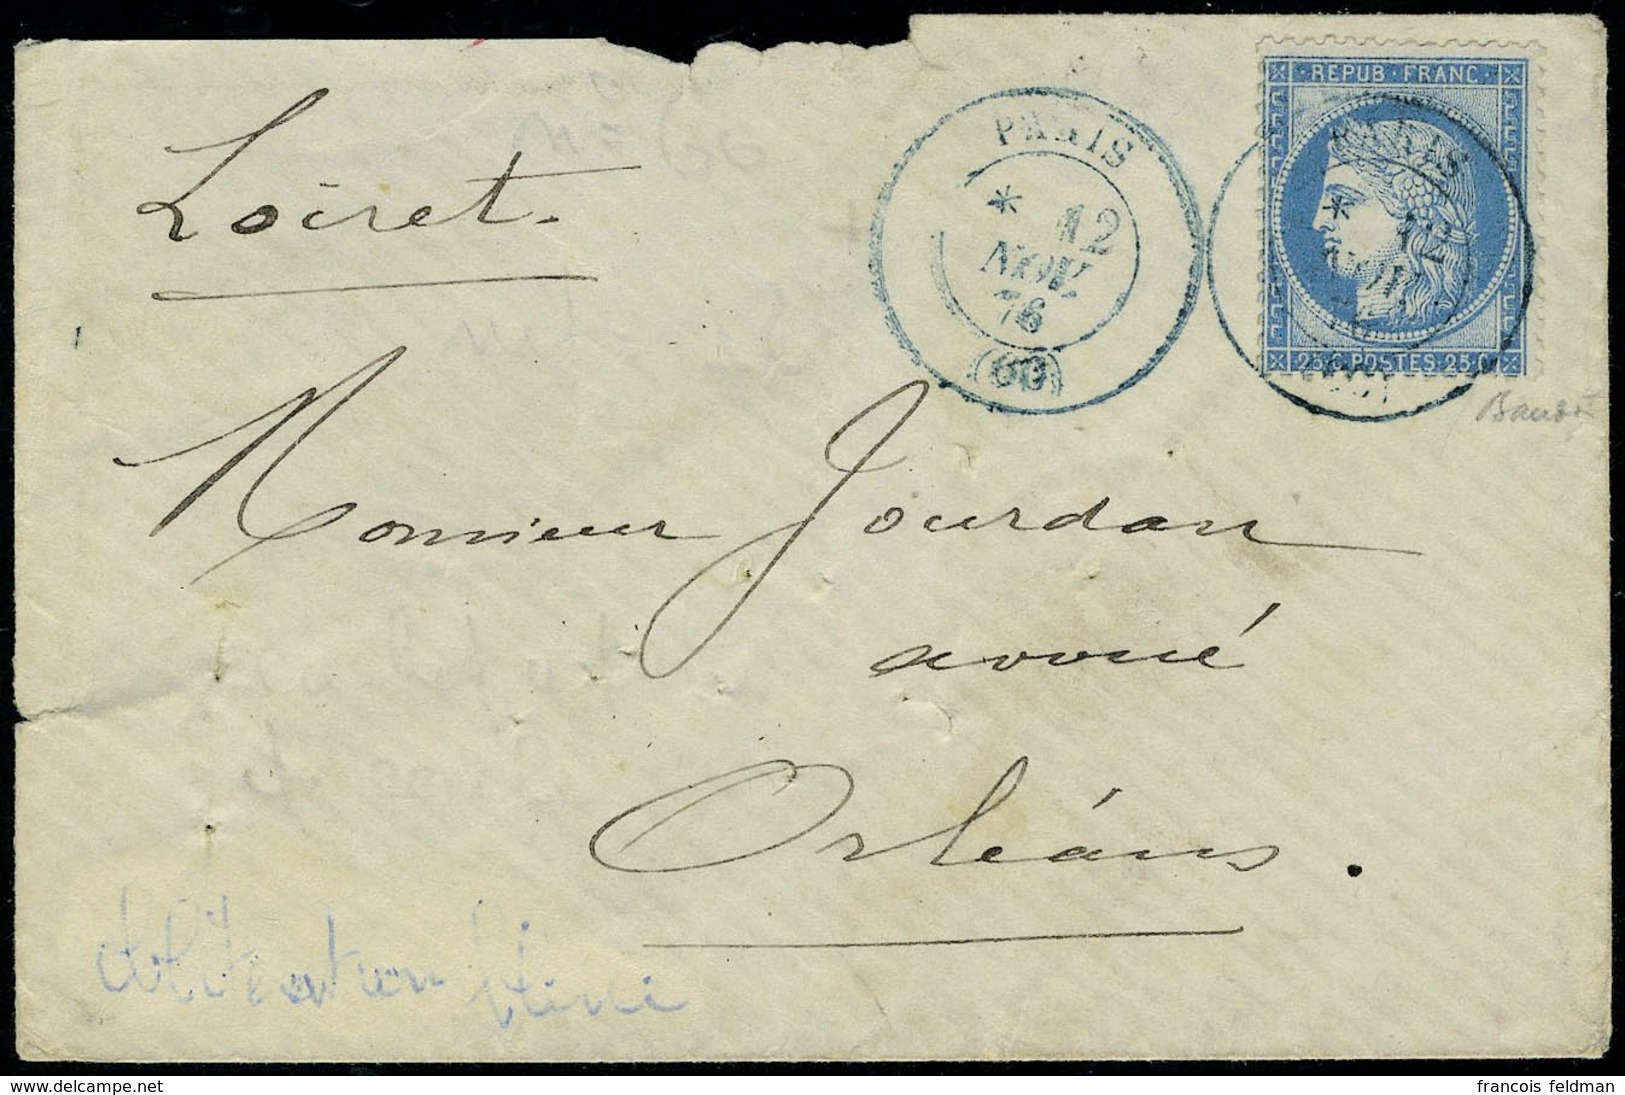 REPUB · FRANC ·
PARIS
PARIS
* 12
* 12
NOV
NOV
76
(60)
25 C. POSTES. 25 C.
Loiret.
Monsieur Jourdan
avoué
Orléans.
www.delcampe.net
francois feldman